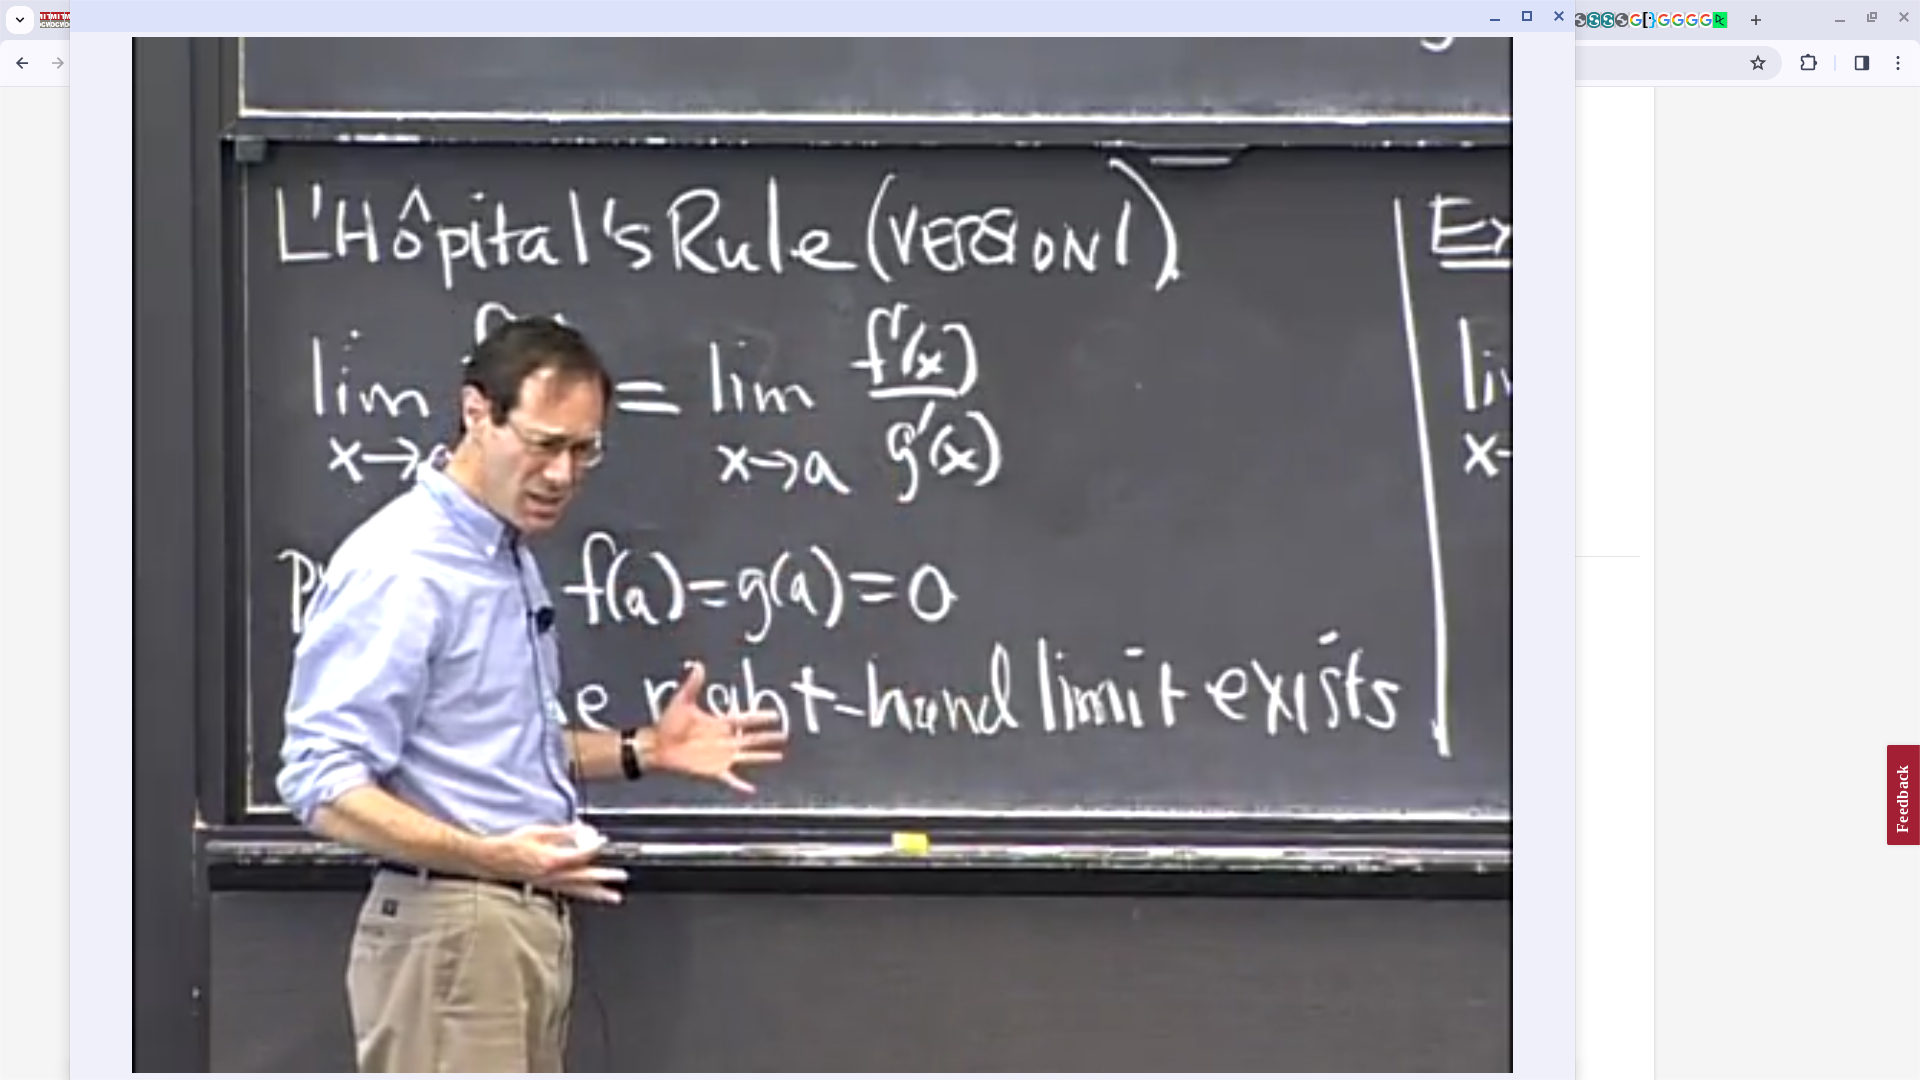 L'Hôpital's Rule (VERSION 1)
lim = lim f'(x)
x→a x→a g'(x)
f(a)=g(a)=0
right-hand limit exists
Ex
lim
x→
Feedback